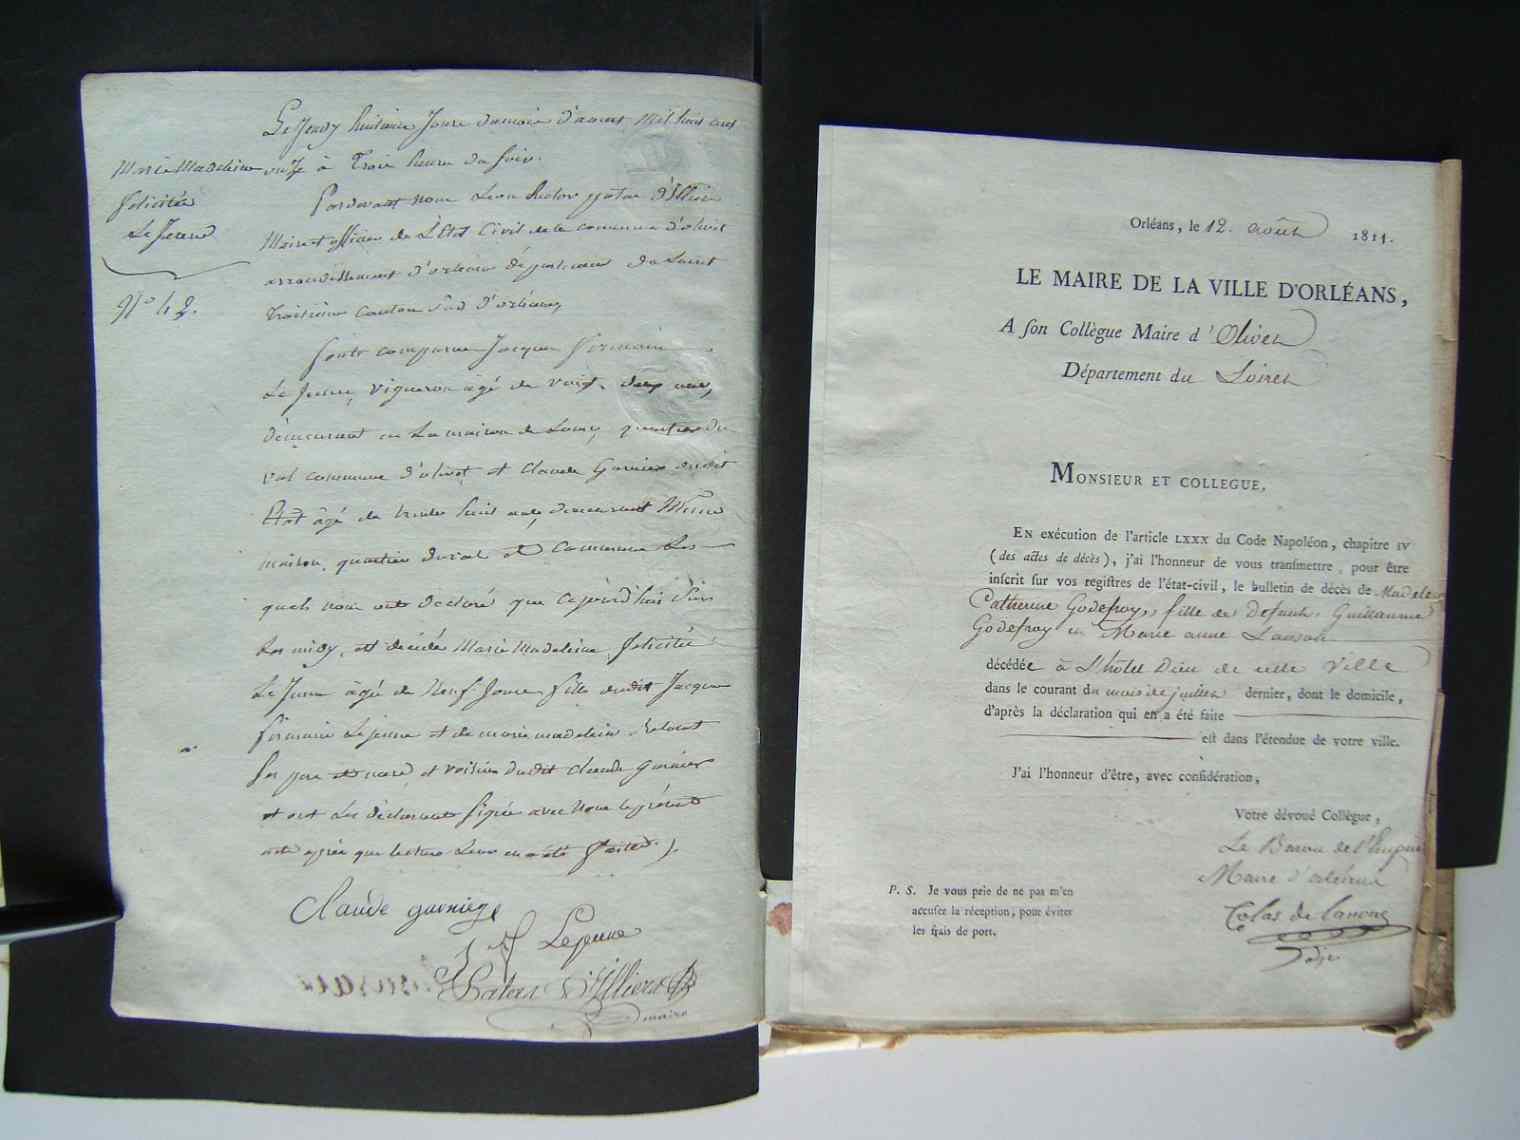 Marie Madeleine
felicité
Le Jeune
N.° 42.
Le Jeudy huitieme Jour du mois d'aoust mil huit cent
onze à Trois heures du soir.
Pardevant nous Leon hector patas d'Illiers
Maire et officier de L'Etat Civil de la commune d'olivet
arrondissement d'orleans département du Loiret
Troisieme canton sud d'orleans,
sont comparus Jacques firmain
Le Jeune, vigneron agé de vingt deux ans,
demeurant en La maison de quartier du
val commune d'olivet et Claude Garnier dudit
Etat agé de trente huit ans, demeurant Même
maison, quartier du val et commune Les
quels nous ont declaré que cejourd'hui dix
heures midy, est decédée Marie Madeleine felicité
Le Jeune agée de Neuf Jours fille dudit Jacques
firmain Le jeune et de marie madeleine
ses pere et mere et voisine dudit claude garnier
et ont Les déclarants signé avec nous le présent
acte après que lecture Leur en a été faite.
Claude garnier
J f Lejeune
Patas d'Illiers
maire
Orléans, le 12. août 1811.
LE MAIRE DE LA VILLE D'ORLÉANS,
A son Collègue Maire d'Olivet
Département du Loiret
MONSIEUR ET COLLEGUE,
EN exécution de l'article LXXX du Code Napoléon, chapitre IV
(des actes de décès), j'ai l'honneur de vous transmettre, pour être
inscrit sur vos registres de l'état-civil, le bulletin de décès de Madele
Catherine Godefroy, fille de defunts Guillaume
Godefroy et Marie anne Lanson
décédée à l'hôtel Dieu de cette Ville
dans le courant du mois de juillet dernier, dont le domicile,
d'après la déclaration qui en a été faite
est dans l'étendue de votre ville.
J'ai l'honneur d'être, avec considération,
Votre dévoué Collègue,
Le Baron de l'Empire
Maire d'orléans
Colas de lanoue
adjt
P. S. Je vous prie de ne pas m'en
accuser la réception, pour éviter
les frais de port.